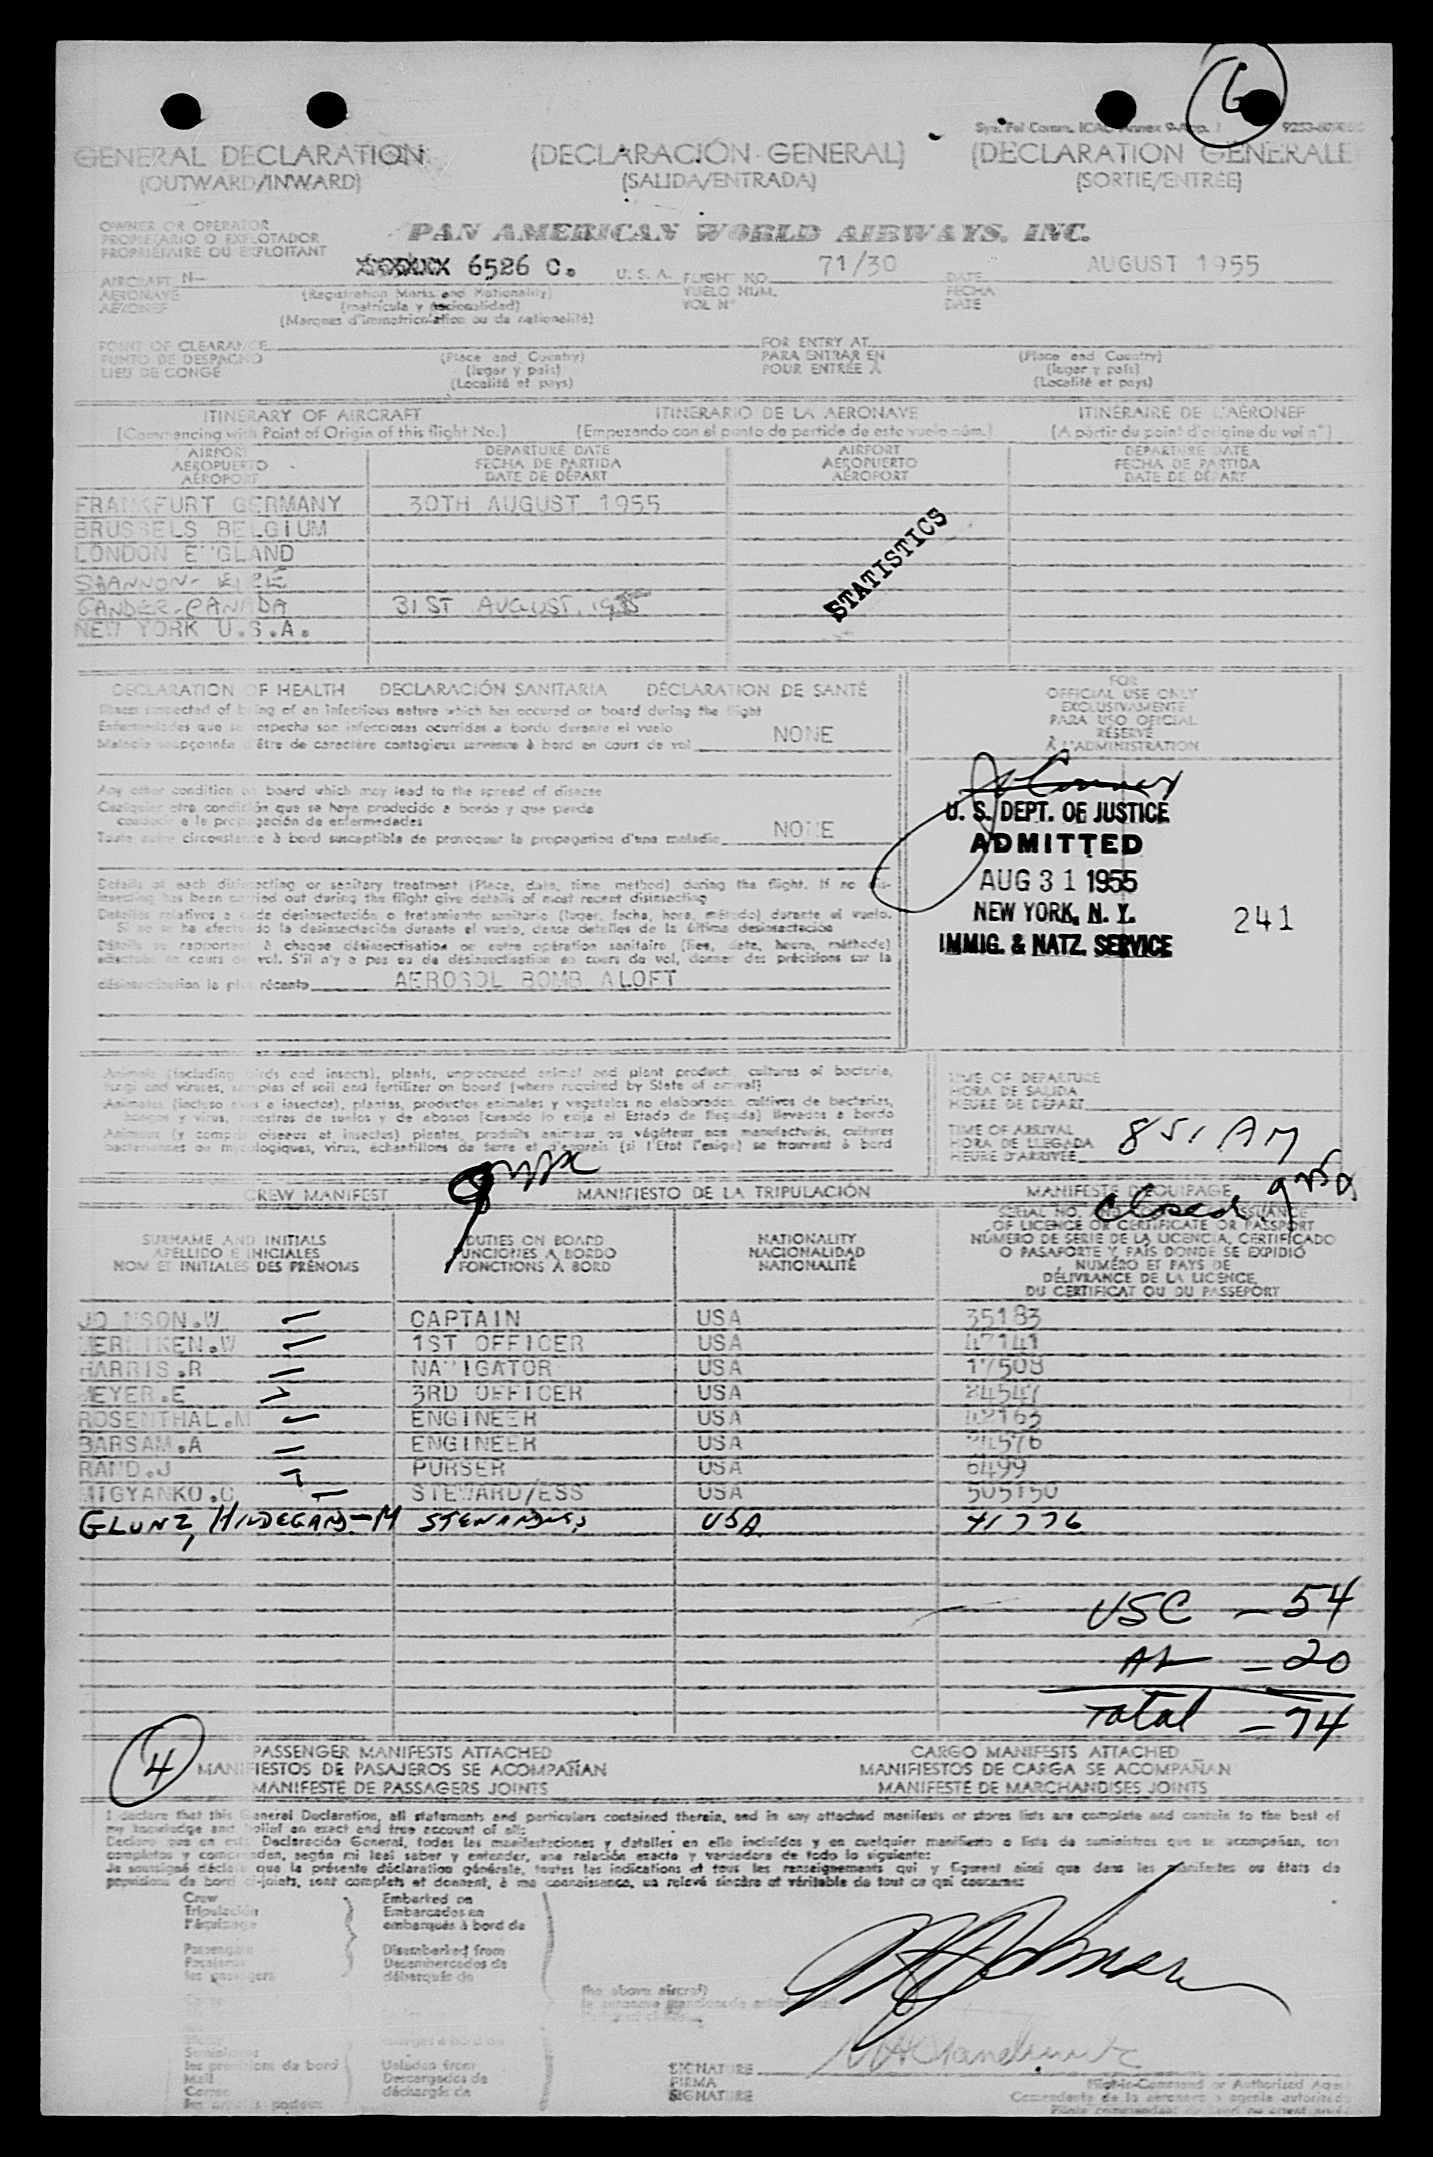 6
GENERAL DECLARATION (DECLARACIÓN GENERAL) (DECLARATION GENERALE
(OUTWARD/INWARD) (SALIDA/ENTRADA) (SORTIE/ENTRÉE)
OWNER OR OPERATOR
PROPIETARIO O EXPLOTADOR
PROPRIÉTAIRE OU EXPLOITANT
PAN AMERICAN WORLD AIRWAYS, INC.
AIRCRAFT N- 6526 C. U. S. A. FLIGHT NO. 71/30 DATE AUGUST 1955
AERONAVE (Registration Marks and Nationality) VUELO NUM. FECHA
AÉRONEF (matrícula y nacionalidad) VOL Nº DATE
(Marques d'immatriculation ou de nationalité)
POINT OF CLEARANCE FOR ENTRY AT
PUNTO DE DESPACHO (Place and Country) PARA ENTRAR EN (Place and Country)
LIEU DE CONGÉ (lugar y país) POUR ENTRÉE À (lugar y país)
(Localité et pays) (Localité et pays)
ITINERARY OF AIRCRAFT ITINERARIO DE LA AERONAVE ITINÉRAIRE DE L'AÉRONEF
(Commencing with Point of Origin of this flight No.) (Empezando con el punto de partida de este vuelo núm.) (A partir du point d'origine du vol nº)
AIRPORT DEPARTURE DATE AIRPORT DEPARTURE DATE
AEROPUERTO FECHA DE PARTIDA AEROPUERTO FECHA DE PARTIDA
AÉROPORT DATE DE DÉPART AÉROPORT DATE DE DÉPART
FRANKFURT GERMANY 30TH AUGUST 1955
BRUSSELS BELGIUM
LONDON ENGLAND
SHANNON- EIRE
GANDER-CANADA 31ST AUGUST, 1955
NEW YORK U.S.A.
STATISTICS
DECLARATION OF HEALTH DECLARACIÓN SANITARIA DÉCLARATION DE SANTÉ
Illness suspected of being of an infectious nature which has occured on board during the flight
Enfermedades que se sospecha son infecciosas ocurridas a bordo durante el vuelo
Maladie soupçonnée d'être de caractère contagieux survenue à bord en cours de vol NONE
Any other condition on board which may lead to the spread of disease
Cualquier otra condición que se haya producido a bordo y que pueda
conducir a la propagación de enfermedades
Toute autre circonstance à bord susceptible de provoquer la propagation d'une maladie NONE
Details of each disinsecting or sanitary treatment (Place, date, time, method) during the flight. If no dis-
insecting has been carried out during the flight give details of most recent disinsecting
Detalles relativos a cada desinsectación o tratamiento sanitario (lugar, fecha, hora, método) durante el vuelo.
Si no se ha efectuado la desinsectación durante el vuelo, dense detalles de la última desinsectación
Détails se rapportant à chaque désinsectisation ou autre opération sanitaire (lieu, date, heure, méthode)
effectuée en cours de vol. S'il n'y a pas eu de désinsectisation en cours de vol, donner des précisions sur la
désinsectisation la plus récente AEROSOL BOMB ALOFT
FOR
OFFICIAL USE ONLY
EXCLUSIVAMENTE
PARA USO OFICIAL
RÉSERVÉ
À L'ADMINISTRATION
U. S. DEPT. OF JUSTICE
ADMITTED
AUG 31 1955
NEW YORK, N. Y.
IMMIG. & NATZ. SERVICE
241
Animals (including birds and insects), plants, unprocessed animal and plant product, cultures of bacteria,
fungi and viruses, samples of soil and fertilizer on board (where required by State of arrival)
Animales (incluso aves e insectos), plantas, productos animales y vegetales no elaborados, cultivos de bacterias,
hongos y virus, muestras de suelos y de abonos (cuando lo exija el Estado de llegada) llevados a bordo
Animaux (y compris oiseaux et insectes) plantes, produits animaux ou végétaux non manufacturés, cultures
bactériennes ou mycologiques, virus, échantillons de terre et d'engrais (si l'Etat l'exige) se trouvant à bord
TIME OF DEPARTURE
HORA DE SALIDA
HEURE DE DÉPART
TIME OF ARRIVAL
HORA DE LLEGADA 851 AM
HEURE D'ARRIVÉE
closed
CREW MANIFEST MANIFIESTO DE LA TRIPULACIÓN MANIFESTE D'ÉQUIPAGE
SURNAME AND INITIALS
APELLIDO E INICIALES
NOM ET INITIALES DES PRÉNOMS
DUTIES ON BOARD
FUNCIONES A BORDO
FONCTIONS À BORD
NATIONALITY
NACIONALIDAD
NATIONALITÉ
OF LICENCE OR CERTIFICATE OR PASSPORT
NÚMERO DE SERIE DE LA LICENCIA, CERTIFICADO
O PASAPORTE Y PAÍS DONDE SE EXPIDIÓ
NUMÉRO ET PAYS DE
DÉLIVRANCE DE LA LICENCE,
DU CERTIFICAT OU DU PASSEPORT
JOHNSON.W CAPTAIN USA 35183
1ST OFFICER USA 47141
HARRIS.R NAVIGATOR USA 17508
MEYER.E 3RD OFFICER USA 84547
ROSENTHAL.M ENGINEER USA 42163
BARSAM.A ENGINEER USA
RAND.J PURSER USA 6499
MIGYANKO.O STEWARD/ESS USA 505150
GLUNZ, HILDEGARD-M STEWARDESS USA 41776
USC - 54
AL - 20
Total - 74
4
PASSENGER MANIFESTS ATTACHED CARGO MANIFESTS ATTACHED
MANIFIESTOS DE PASAJEROS SE ACOMPAÑAN MANIFIESTOS DE CARGA SE ACOMPAÑAN
MANIFESTE DE PASSAGERS JOINTS MANIFESTE DE MARCHANDISES JOINTS
I declare that this General Declaration, all statements and particulars contained therein, and in any attached manifests or stores lists are complete and contain to the best of
my knowledge and belief an exact and true account of all:
Declaro que en esta Declaración General, todas las manifestaciones y detalles en ella incluídos y en cualquier manifiesto o lista de suministros que se acompañan, son
completos y comprenden, según mi leal saber y entender, una relación exacta y verdadera de todo lo siguiente:
Je soussigné déclare que la présente déclaration générale, toutes les indications et tous les renseignements qui y figurent ainsi que dans les manifestes ou états de
provisions de bord ci-joints, sont complets et donnent, à ma connaissance, un relevé sincère et véritable de tout ce qui concerne:
Crew Embarked on
Tripulación Embarcados en
l'équipage embarqués à bord de
Passengers Disembarked from
Pasajeros Desembarcados de
les passagers débarqués de
the above aircraft
les provisions de bord Unladen from
Mail Descargados de
Correo déchargés de
SIGNATURE
FIRMA
SIGNATURE
Pilot-in-Command or Authorized Agent
Comandante de la aeronave o agente autorizado